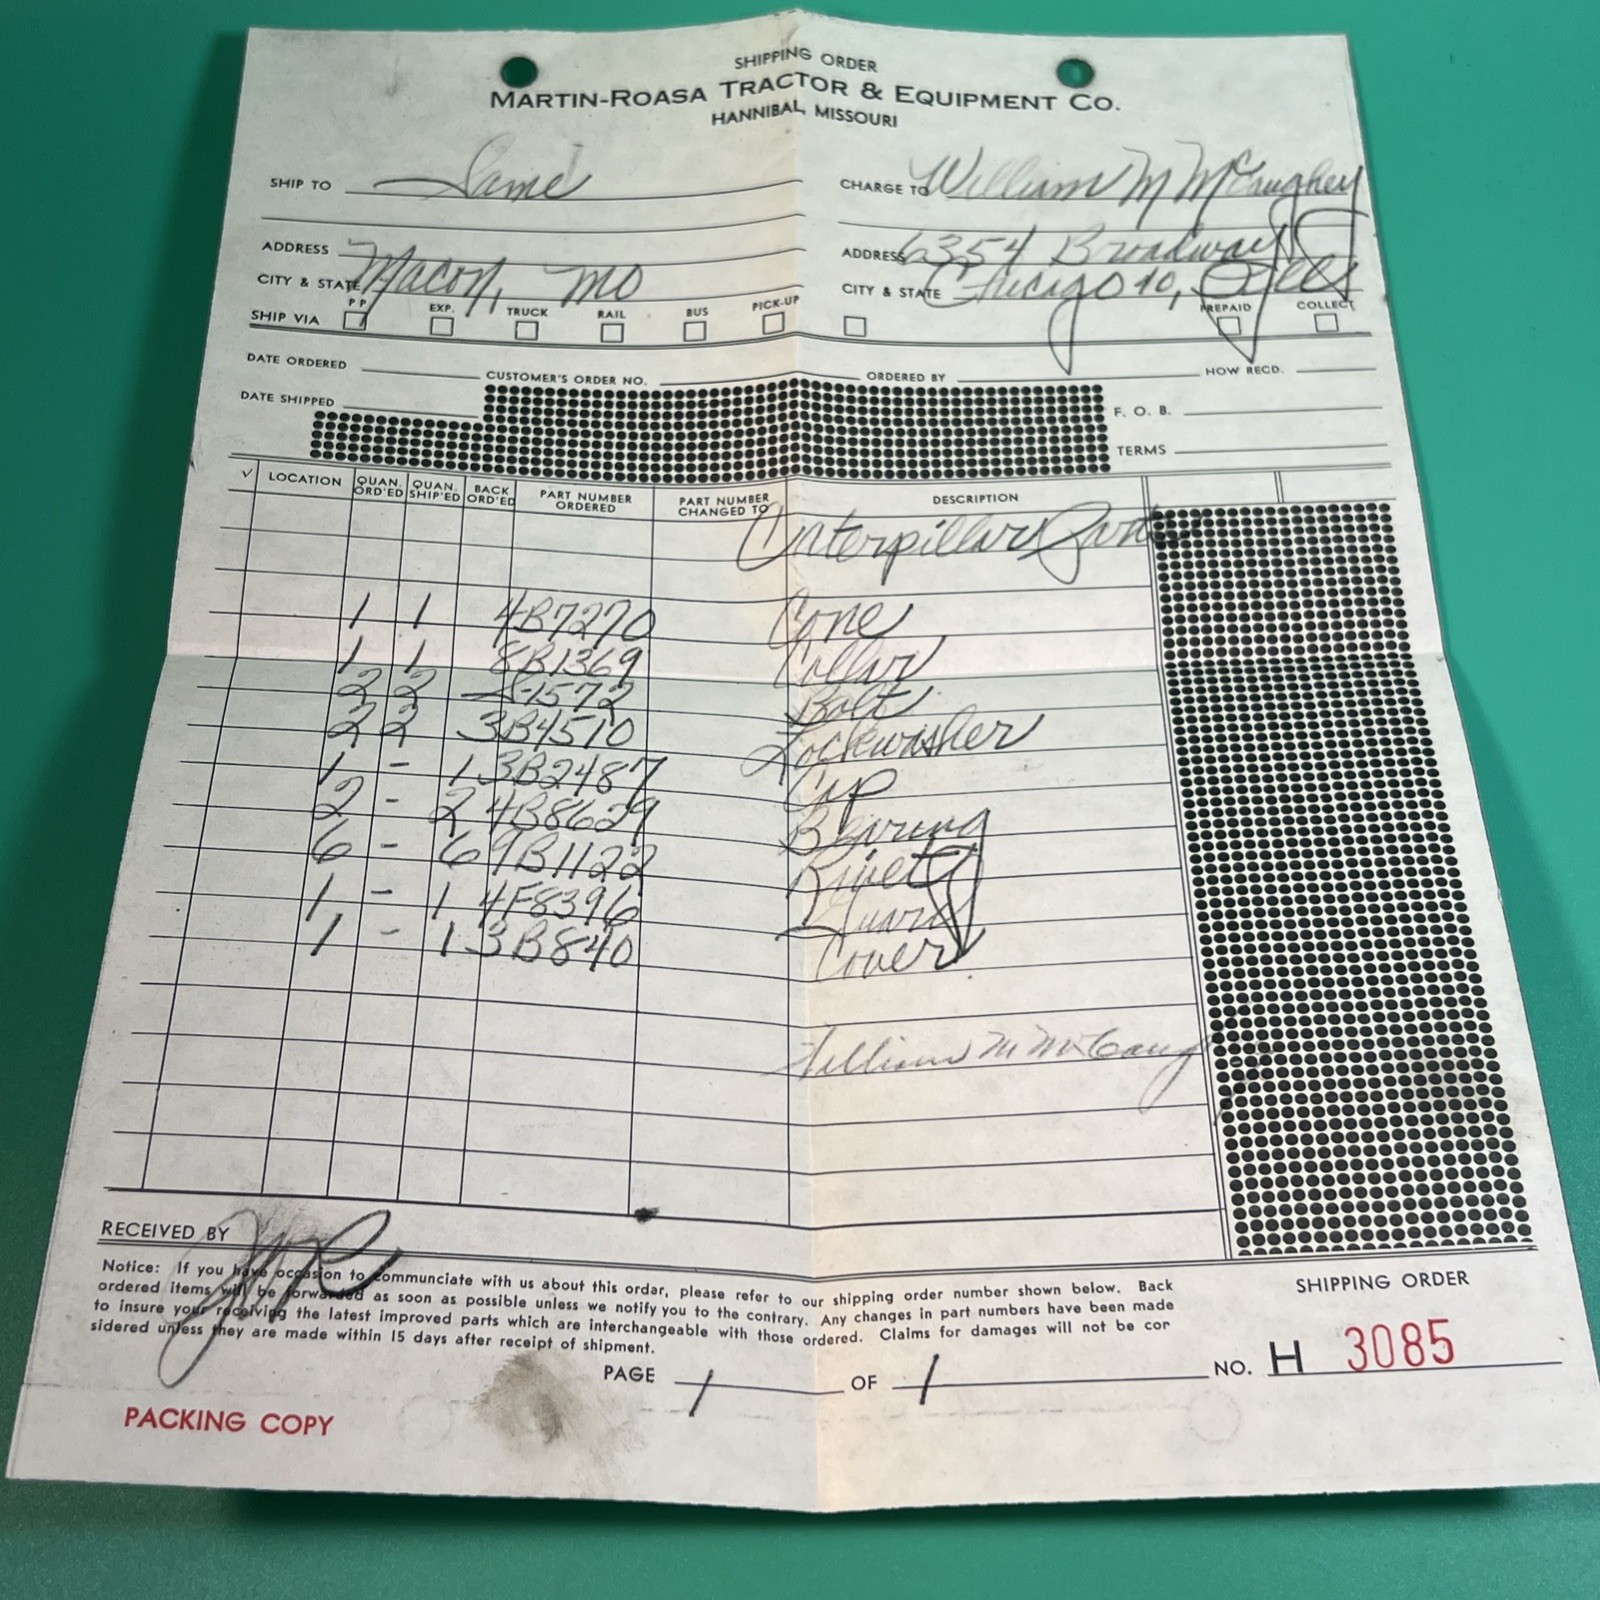 SHIPPING ORDER
MARTIN-ROASA TRACTOR & EQUIPMENT CO.
HANNIBAL, MISSOURI
SHIP TO Same CHARGE TO William M McGaughey
ADDRESS ADDRESS 6354 Broadway
CITY & STATE Macon, Mo CITY & STATE Chicago 40, Ills
SHIP VIA PP EXP. TRUCK RAIL BUS PICK-UP PREPAID COLLECT
DATE ORDERED CUSTOMER'S ORDER NO. ORDERED BY HOW RECD.
DATE SHIPPED F. O. B.
TERMS
√ LOCATION QUAN. ORD'ED QUAN. SHIP'ED BACK ORD'ED PART NUMBER ORDERED PART NUMBER CHANGED TO DESCRIPTION
Caterpillar Parts
1 1 4B7270 Cone
1 1 8B1369 Collar
2 2 1572 Bolt
2 2 3B4510 Lockwasher
1 - 1 3B2487 Cup
2 - 2 4B8629 Bearing
6 - 6 9B1122 Rivet
1 - 1 4F8396 Guard
1 - 1 3B840 Cover
William M McGaug
RECEIVED BY
Notice: If you have occasion to communciate with us about this ordar, please refer to our shipping order number shown below. Back
ordered items will be forwarded as soon as possible unless we notify you to the contrary. Any changes in part numbers have been made
to insure your receiving the latest improved parts which are interchangeable with those ordered. Claims for damages will not be cor
sidered unless they are made within 15 days after receipt of shipment.
SHIPPING ORDER
PAGE 1 OF 1 NO. H 3085
PACKING COPY